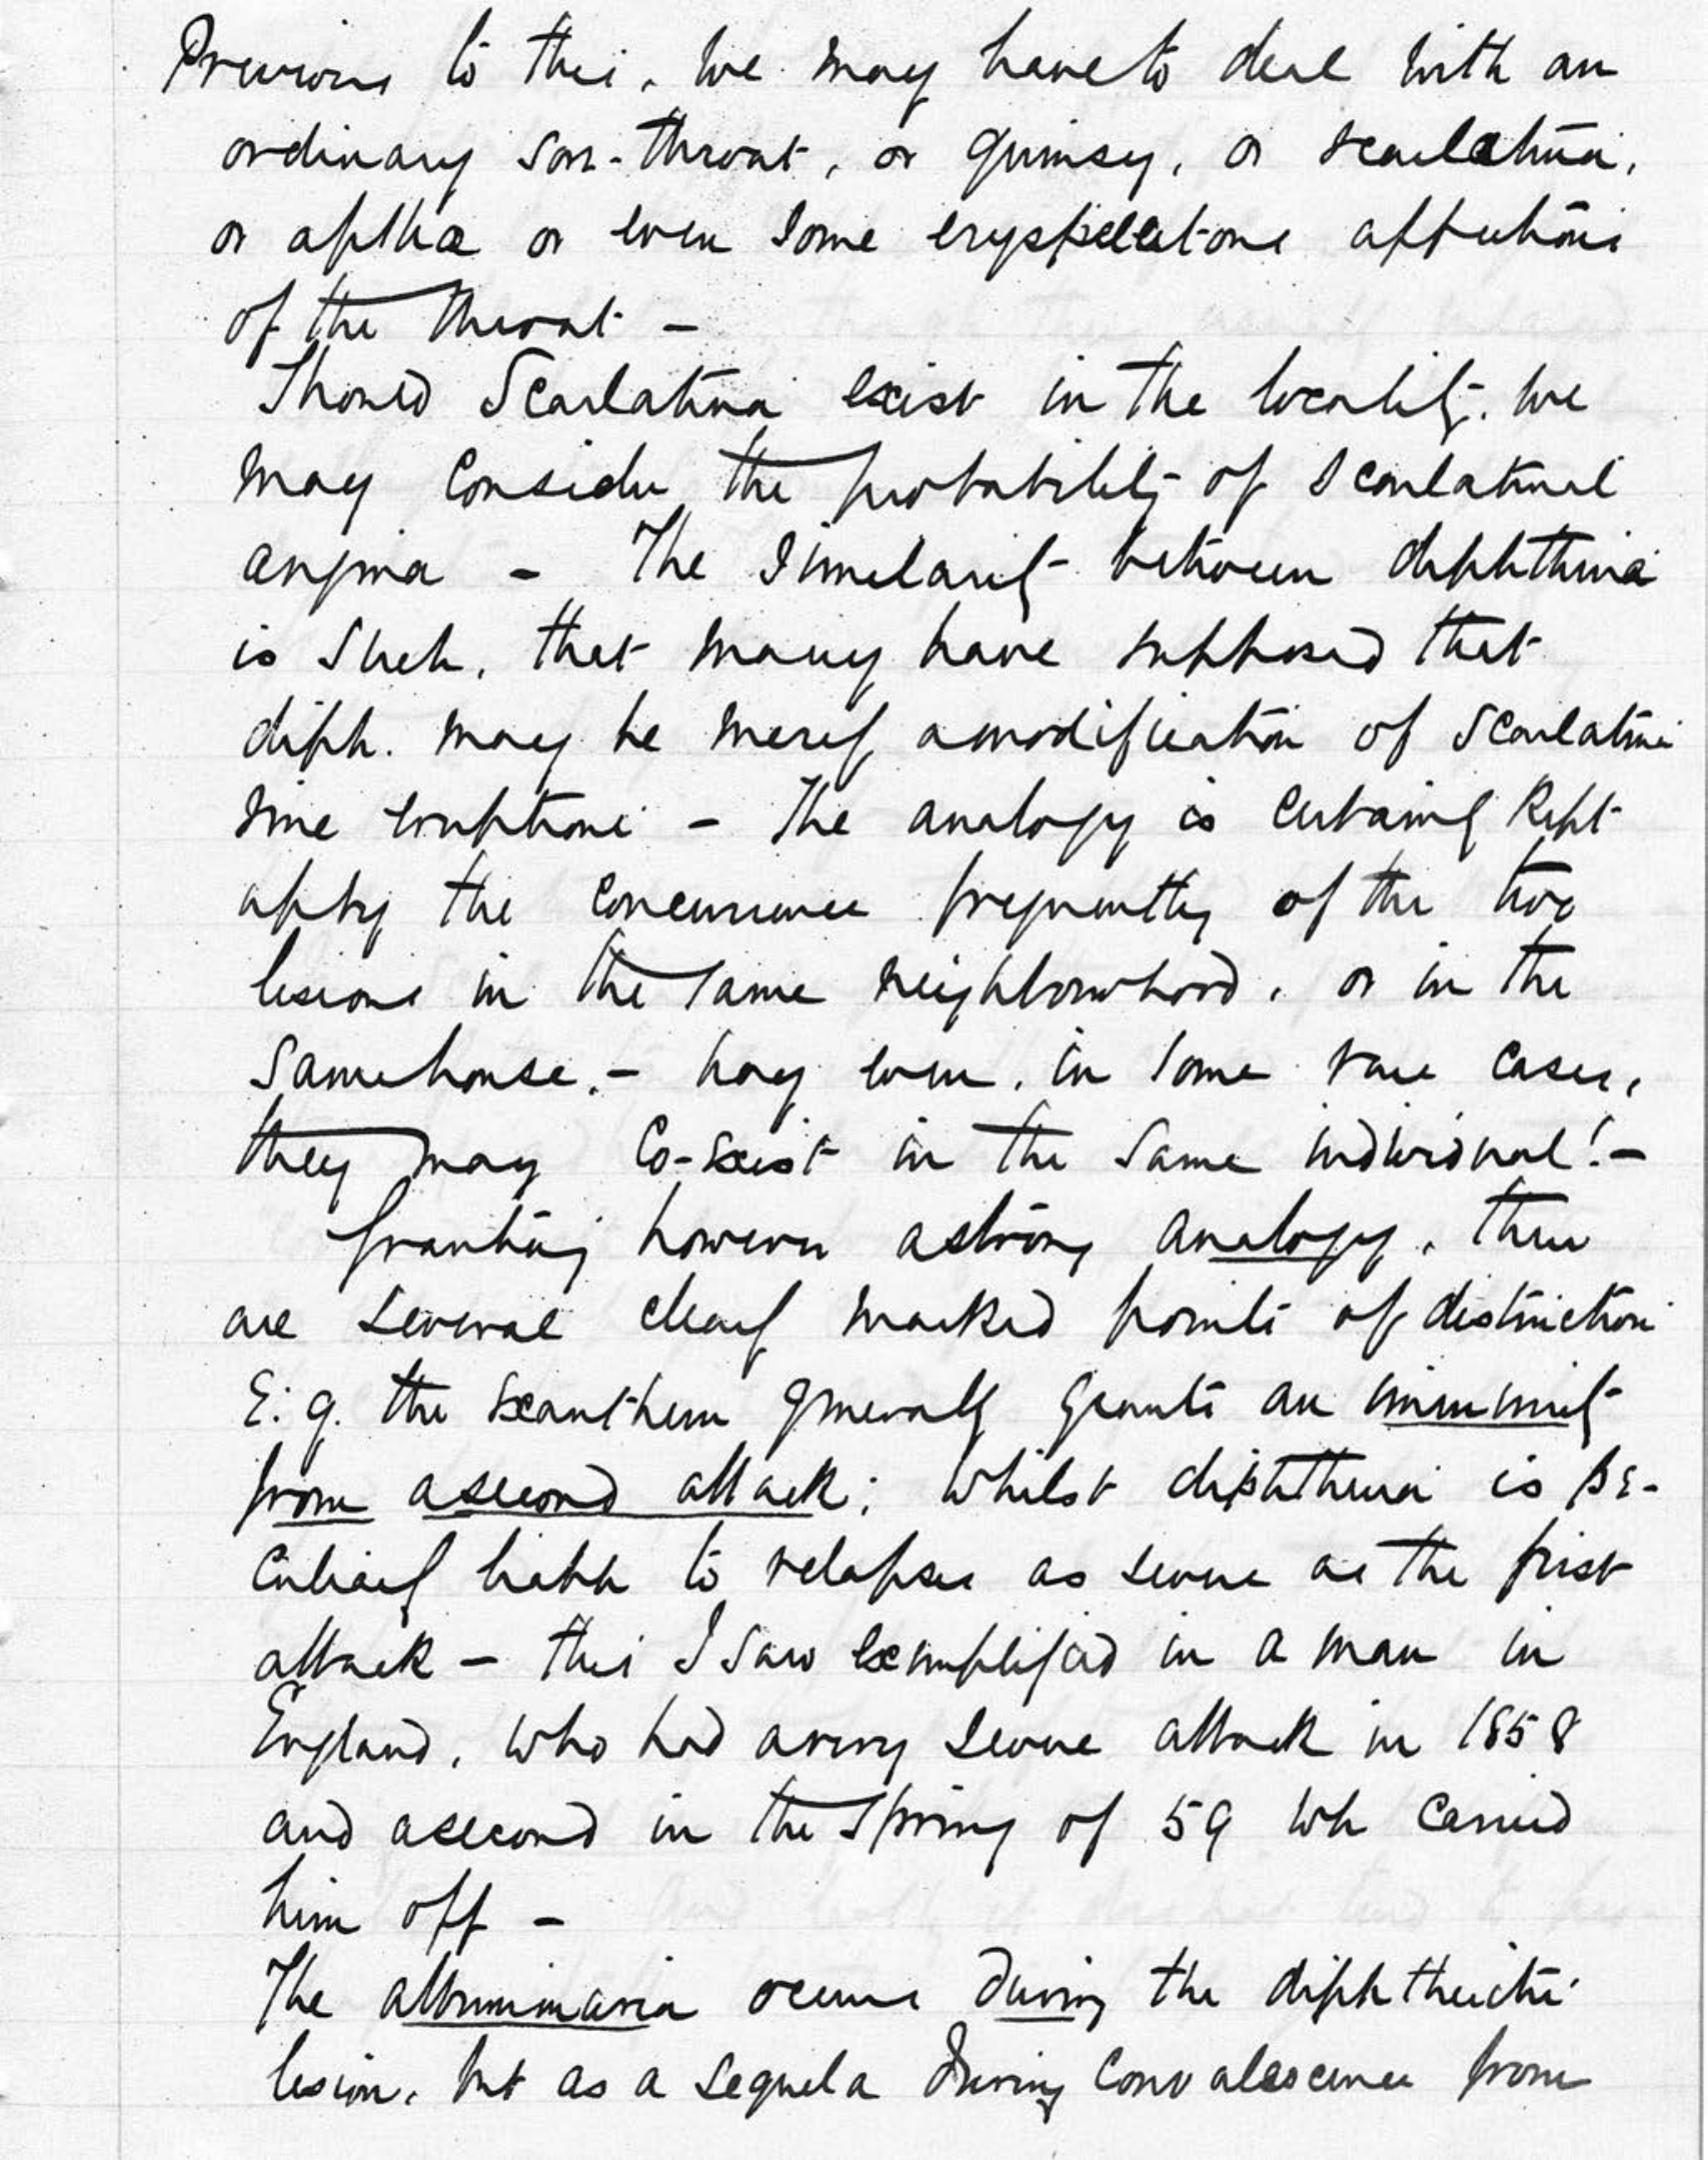 Previous to this, we may have to deal with an
ordinary sore-throat, or quinsy, or scarlatina,
or apthæ or even some erysipelatous affections
of the throat –
Should Scarlatina exist in the locality, we
may consider the probability of Scarlatinal
angina – The Similarity between diphtheria
is such, that many have supposed that
diph. may be merely a modification of Scarlatina
sine eruptione – The analogy is certainly kept
up by the concurrence frequently of the two
lesions in the same neighbourhood, or in the
same house. – nay even, in some rare cases,
they may Co-exist in the same individual! –
Granting however a strong analogy, there
are several clearly marked points of distinction
E. g. the exanthem generally grants an immunity
from a second attack; whilst diphtheria is pe-
culiarly liable to relapses as severe as the first
attack – this I saw exemplified in a man in
England, who had a very severe attack in 1858
and a second in the Spring of 59 wh carried
him off –
The albuminuria occurs during the diphtheritic
lesion, but as a sequela during convalescence from